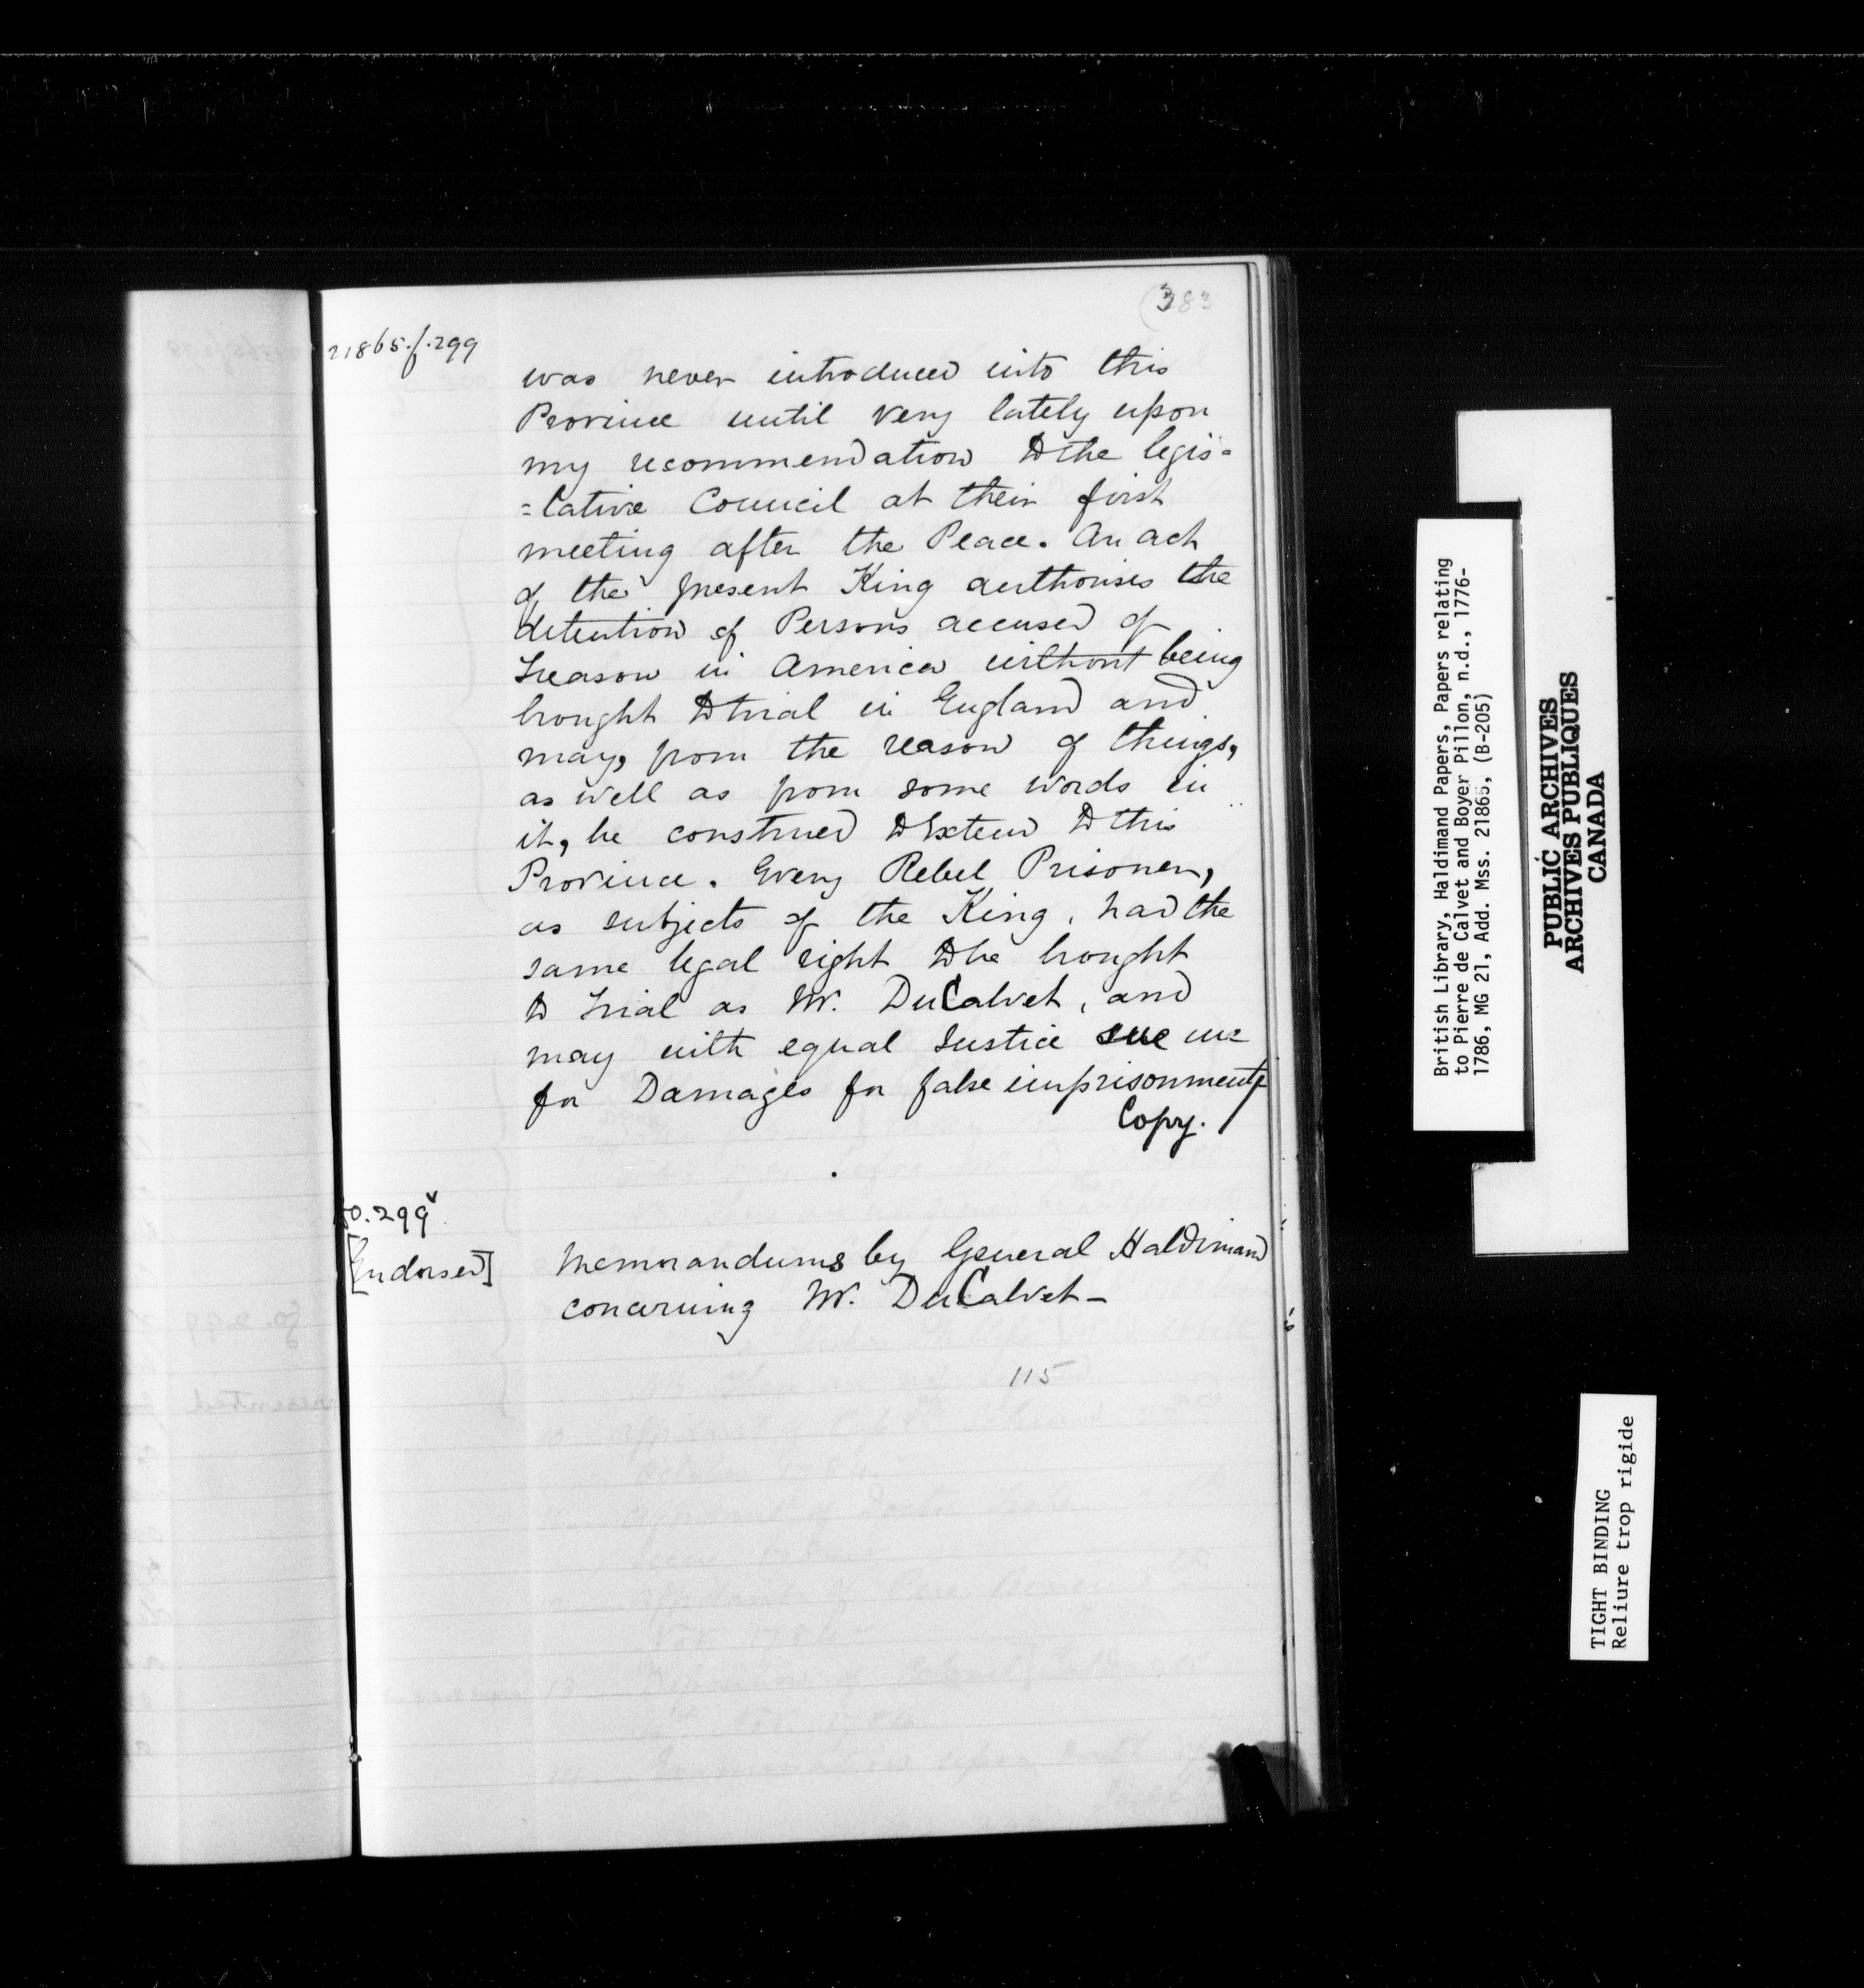 (383
21865.f.299
was never introduced into this
Province until very lately upon
my recommendation to the legis=
=lative Council at their first
meeting after the Peace. An act
of the present King authorises the
detention of Persons accused of
Treason in America without being
brought to trial in England and
may, from the reason of things,
as well as from some words in
it, be construed to Extend to this
Province. Every Rebel Prisoner,
as subjects of the King, had the
same legal right to be brought
to Trial as Mr. DuCalvet, and
may with equal Justice sue me
for Damages for false imprisonment
Copy.
fo. 299v
[Endorsed]
Memorandums by General Haldimand
concerning Mr. DuCalvet—
115
British Library, Haldimand Papers, Papers relating
to Pierre de Calvet and Boyer Pillon, n.d., 1776-
1786, MG 21, Add. Mss. 21865, (B-205)
PUBLIC ARCHIVES
ARCHIVES PUBLIQUES
CANADA
TIGHT BINDING
Reliure trop rigide